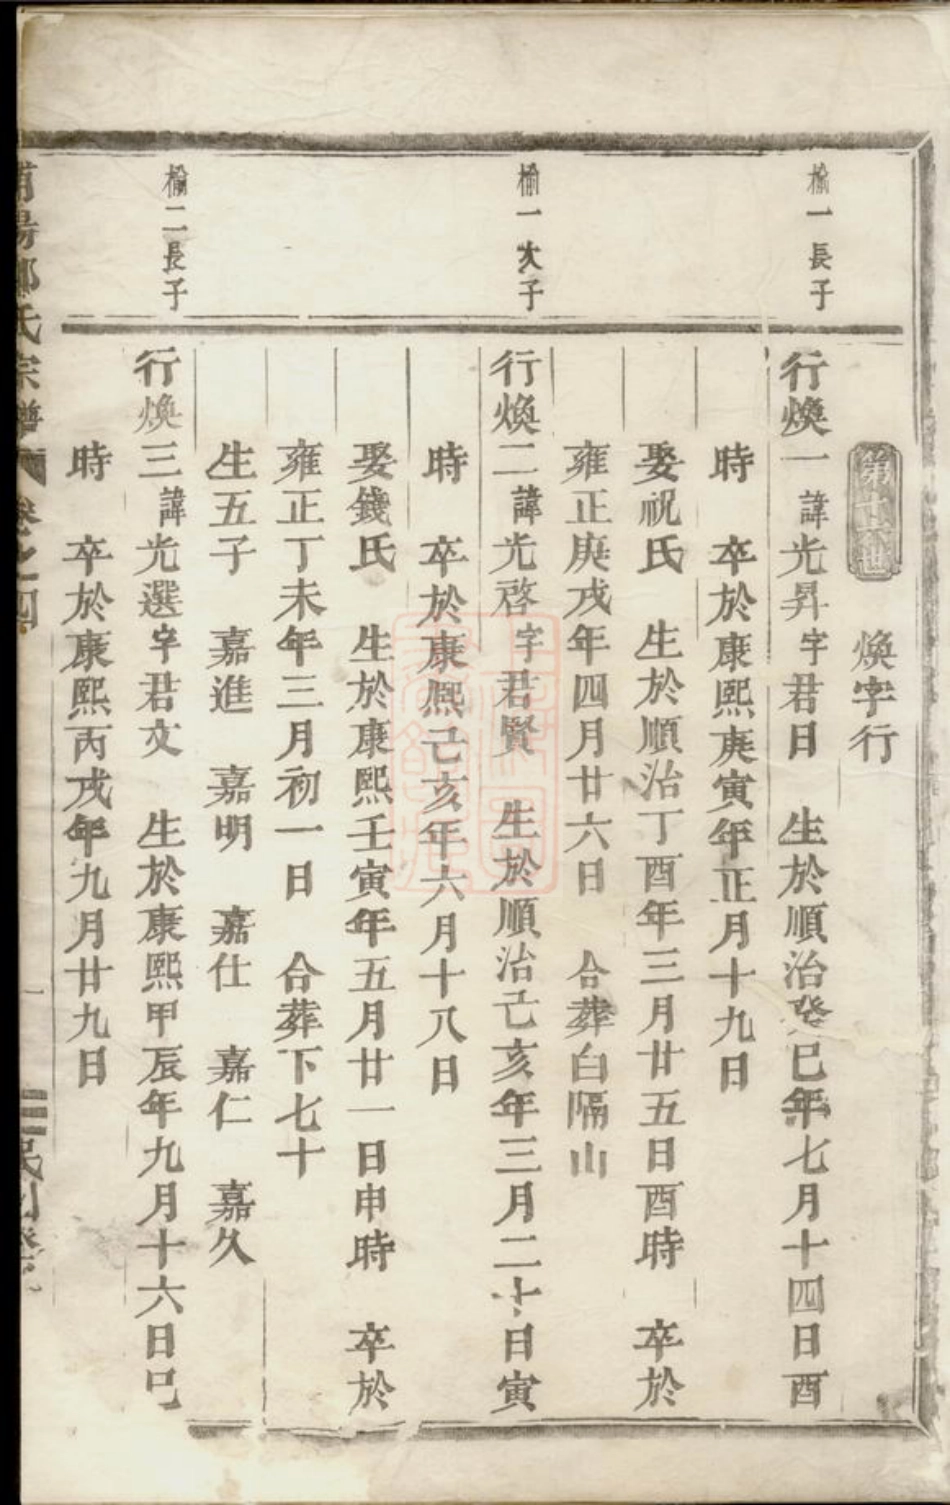 第十六世 煥字行
榆一長子
行煥一諱光昇字君日 生於順治癸巳年七月十四日酉
時 卒於康熙庚寅年正月十九日
娶祝氏 生於順治丁酉年三月廿五日酉時 卒於
雍正庚戌年四月廿六日 合葬白隔山
榆一次子
行煥二諱光啓字君賢 生於順治己亥年三月二十日寅
時 卒於康熙己亥年六月十八日
娶錢氏 生於康熙壬寅年五月廿一日申時 卒於
雍正丁未年三月初一日 合葬下七十
生五子 嘉進 嘉明 嘉仕 嘉仁 嘉久
榆二長子
行煥三諱光選字君文 生於康熙甲辰年九月十六日巳
時 卒於康熙丙戌年九月廿九日
氏宗譜 卷之四 一